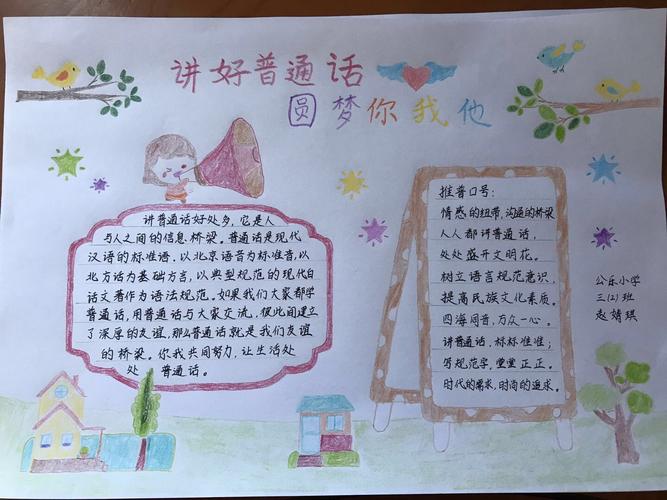 讲好普通话
圆梦你我他
讲普通话好处多,它是人
与人之间的信息桥梁。普通话是现代
汉语的标准语.以北京语音为标准音,以
北方话为基础方言,以典型规范的现代白
话文著作为语法规范。如果我们大家都学
普通话,用普通话与大家交流,彼此间建立
了深厚的友谊,那么普通话就是我们友谊
的桥梁。你我共同努力,让生活处
处 普通话。
推普口号:
情感的纽带,沟通的桥梁
人人都讲普通话,
处处盛开文明花。
树立语言规范意识,
提高民族文化素质。
四海同音,万众一心。
讲普通话,标标准准;
写规范字,堂堂正正。
时代的需求,时尚的追求。
公乐小学
三(2)班
赵婧琪